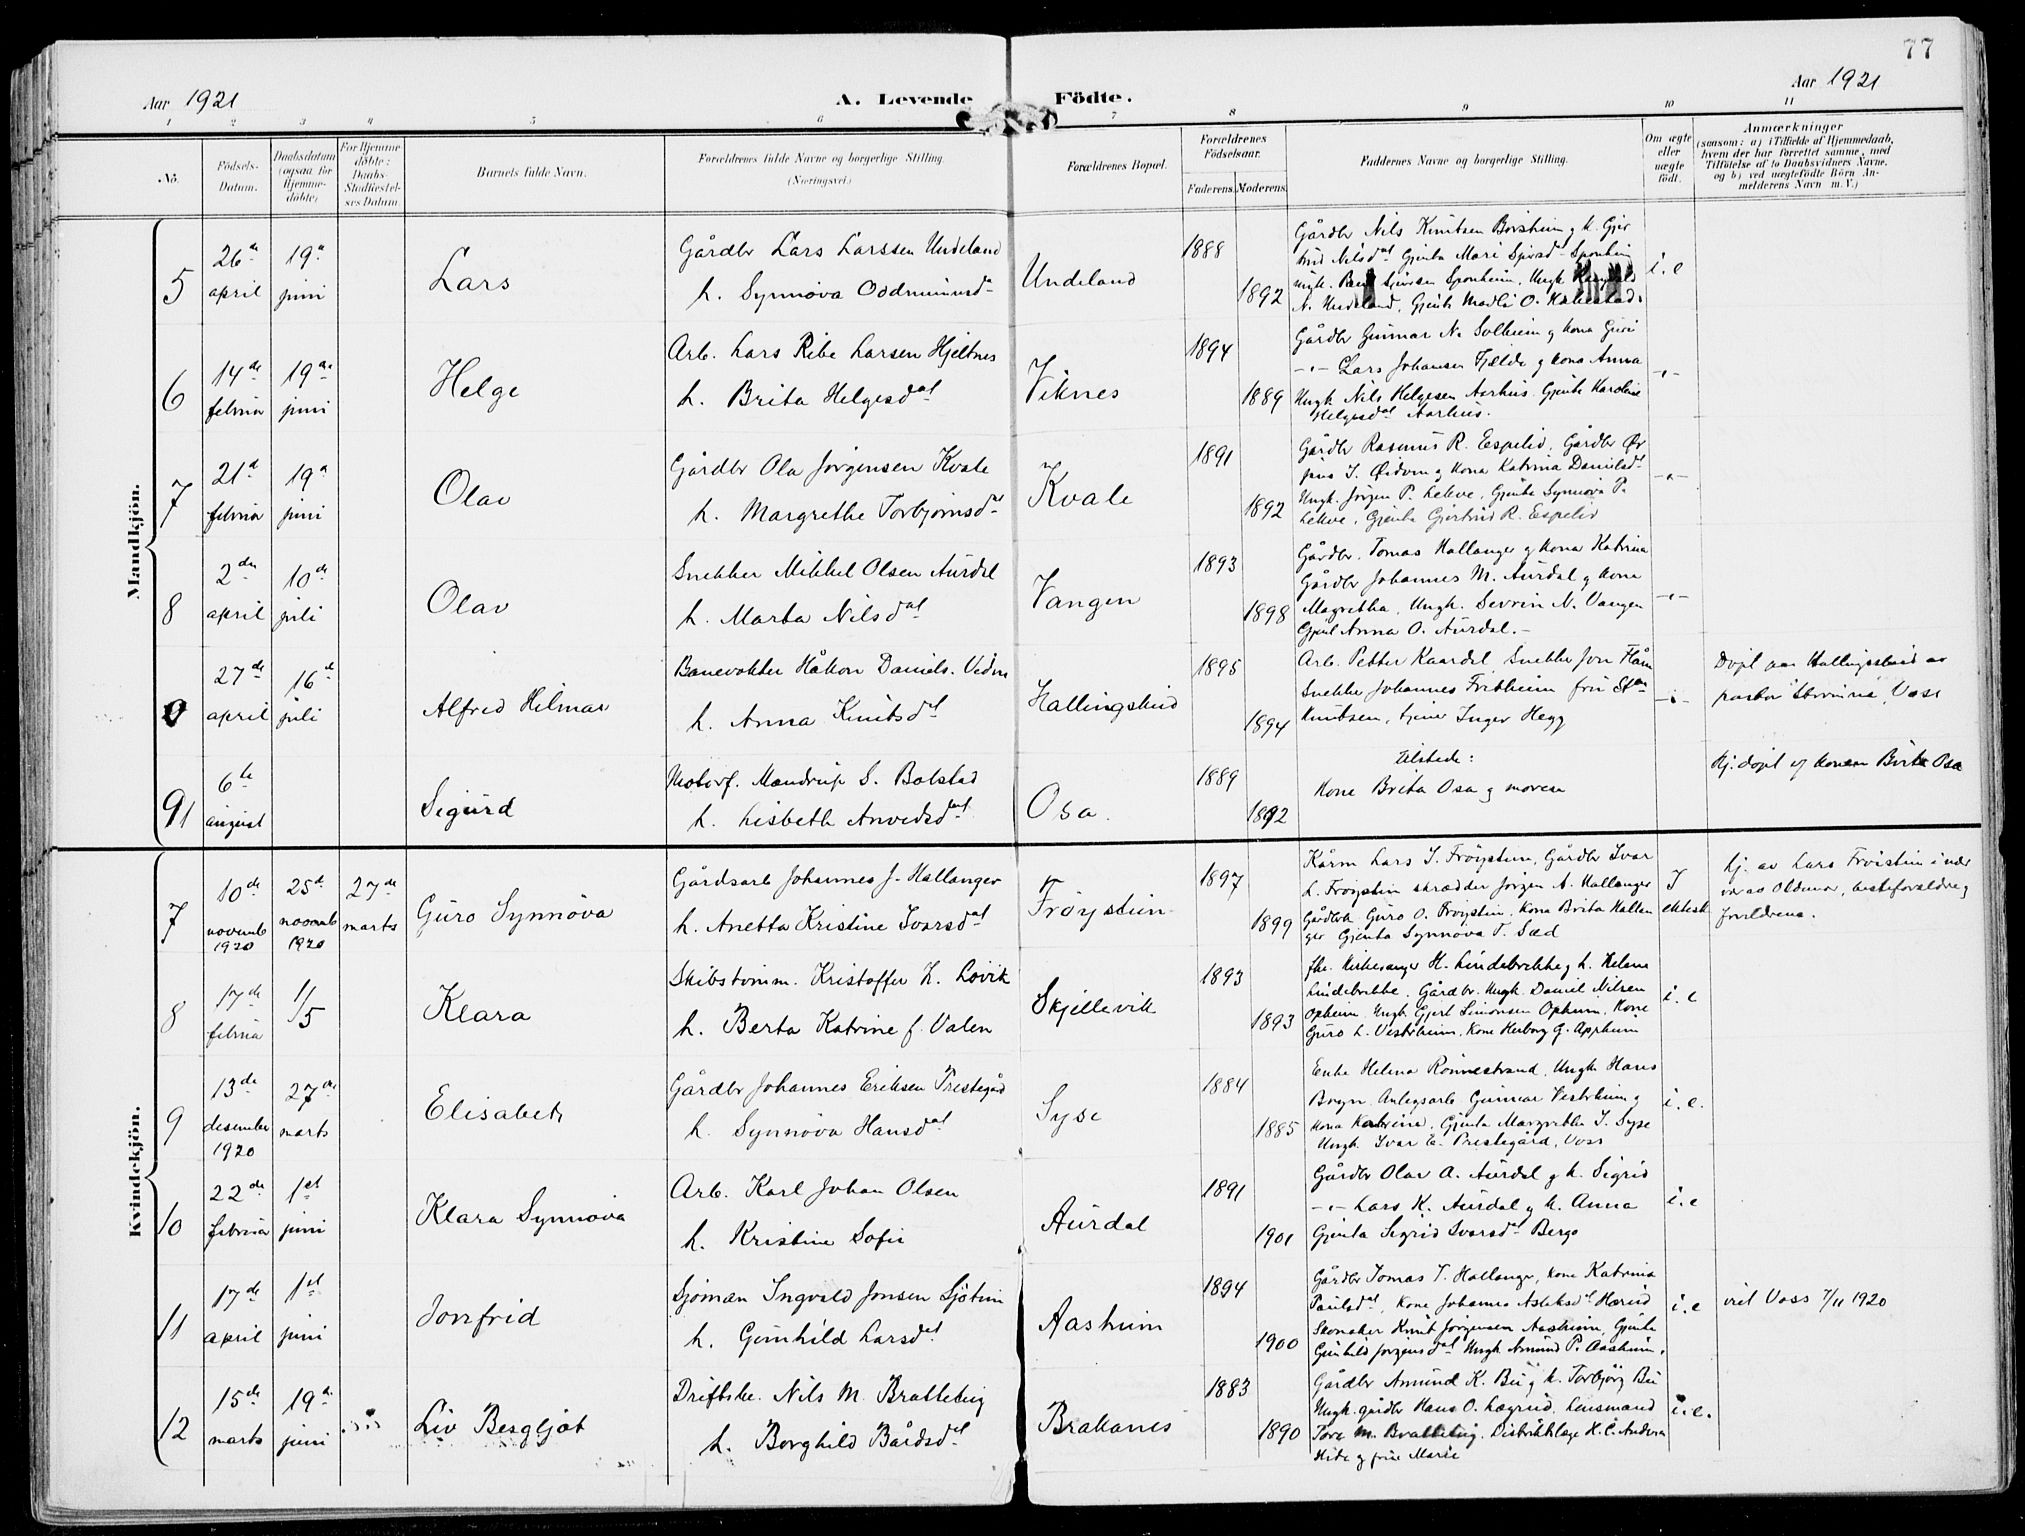 77
Aar 1921
A. Levende Födte.
Aar 1921
1 2 3 4 5 6 7 8 9 10 11
No.
Födsels-Datum.
Daabsdatum (ogsaa for Hjemme-döbte)
For Hjemme-döbte: Daabs-Stadfæstel-ses Datum
Barnets fulde Navn.
Forældrenes fulde Navne og borgerlige Stilling. (Næringsvei.)
Forældrenes Bopæl.
Forældrenes Födselsaar.
Faderens. Moderens.
Faddernes Navne og borgerlige Stilling.
Om ægte eller uægte födt.
Anmærkninger
(saasom: a) i Tilfælde af Hjemmedaab,
hvem der har forrettet samme, med
Tilföielse af to Daabsvidners Navne,
og b) ved uægtefödte Börn An-
melderens Navn m. V.)
Mandkjön.
5 26de april 19de juni Lars
Gårdbr Lars Larssen Undeland
h. Synnöva Oddmundsd.
Undeland 1888 1892
Gårdbr Nils Knutsen Borsheim g k. Gjer
trud Nilsdat Gjenta Mari Sjursd Sponheim
ungk. Sjursen Sponheim, Ungk
N. Undeland, Gjenta Madli O.
i. e
6 14de februar 19de juni Helge
Arb. Lars Ribe Larsen Hjeltnes
h. Brita Helgesdat
Viknes 1894 1889
Gårdbr Gunnar N. Solheim g kona Guri
-"- Lars Johansen Fjelde g kona Anna
Ungk Nils Helgesen Aarhus Gjenta Karoline
Helgesdat Aarhus.
-"-
7 21de februar 19de juni Olav
Gårdbr Ola Jørgensen Kvale
h. Margrethe Torbjørnsdt
Kvale 1891 1892
Gårdbr Rasmus R. Espelid, Gårdbr Ør
jans I. Øidven g kona Katrina Danielsdt
Ungk. Jørgen P. Lekve, Gjenta Synnöva P.
Lekve, Gjenta Gjertrud R. Espelid
-"-
8 2den april 10de juli Olav
Snekker Mikkel Olsen Aurdal
h. Marta Nilsdat
Vangen 1893 1898
Gårdbr. Tomas Hallanger g kona Katrina
Gårdbr Johannes M. Aurdal g kona
Magretha, Ungk. Sevrin N. Vangen
Gjent Anna O. Aurdal.-
-"-
9 27de april 16de juli Alfred Hilmar
Banevokter Håkon Daniels. Vedvi
h. Anna Knutsdt
Hallingskeid 1895 1894
Arb. Petter Kaardal Snekker Jon Flåm
Snekker Johannes Fritheim fru
Knutsen, tjener Inger Hegg
-"-
Døpt paa Hallingskeid av
pastor Voss
91 6te august Sigurd
Motorf. Mandrup S. Bolstad
h. Lisbeth Arvedsdat
Osa. 1889 1892
tilstede:
Kone Brita Osa g moren
Hj. døpt af konen Brita Osa
Kvindekjön.
7 10de novemb 1920 25de novemb 1920 27de marts Guro Synnöva
Gårdsarb Johannes J. Hallanger
h. Anetta Kristine Ivarsdat
Fröystein 1897 1899
Kårm Lars I. Fröystein, Gårdbr Ivar
L. Fröystein skrædder Jörgen A. Hallanger
Gårdbk Guro O. Fröystein, Kona Brita Hallan
ger Gjenta Synnöva T. Sæd
I ektesk
hj. av Lars Fröistein i nær
vær av Oldmor, besteforeldre g
foreldrene.
8 17de februar 1/5 Klara
Skibstømm. Kristoffer L. Løvik
h. Berta Katrine f. Valen
Skjellevik 1893 1893
fhv. Kirkesanger H. Lindebrekke g h. Helene
Lindebrekke. Gårdbr. Ungk. Daniel Nilsen
Opheim Ungk Gjert Simonsen Opheim, Kone
Guro L. Vestrheim, Kone Herborg G. Appheim
i. e
9 13de desember 1920 27de marts Elisabet
Gårdbr Johannes Eriksen Prestegård
h. Synnöva Hansdat
Syse 1884 1885
Enke Helena Rönnestrand, Ungk Hans
Anlegsarb. Gunnar Vestrheim g
kona Katrina, Gjenta Margretha I. Syse
Ungk Ivar E. Prestegård, Voss
i. e.
10 22de februar 1st juni Klara Synnöva
Arb. Karl Johan Olsen
h. Kristine Sofie
Aurdal 1891 1901
Gårdbr Olav A. Aurdal g k. Sigrid
-"- Lars K. Aurdal g k. Anna
Gjenta Sigrid Ivarsdat Bergo
i. e
11 17de april 1st juni Jonfrid
Sjömæn Ingvald Jonsen Sjötun
h. Gunhild Larsdat
Aasheim 1894 1900
Gårdbr Tomas T. Hallanger, kone Katrina
Paulsdat, Kone Johanna Aslaksdat Hæreid
Skomaker Knut Jörgensen Aasheim, Gjenta
Gunhild Jorgensdat Ungk Amund P. Aasheim.
i. e
viet Voss 7/11 1920
12 15de marts 19de juni Liv Bergljót
Driftsbe. Nils M. Bratteteig
h. Borghild Bårdsdt
Brakanes 1883 1890
Gårdbr Amund K. Bu g k. Torbjörg Bu
Ungk. gårdbr Hans O. Lægreid, Lensmand
Tore M. Bratteteig. Distriktslæge H. C. Anders
Hide g frue Marie
i. e.